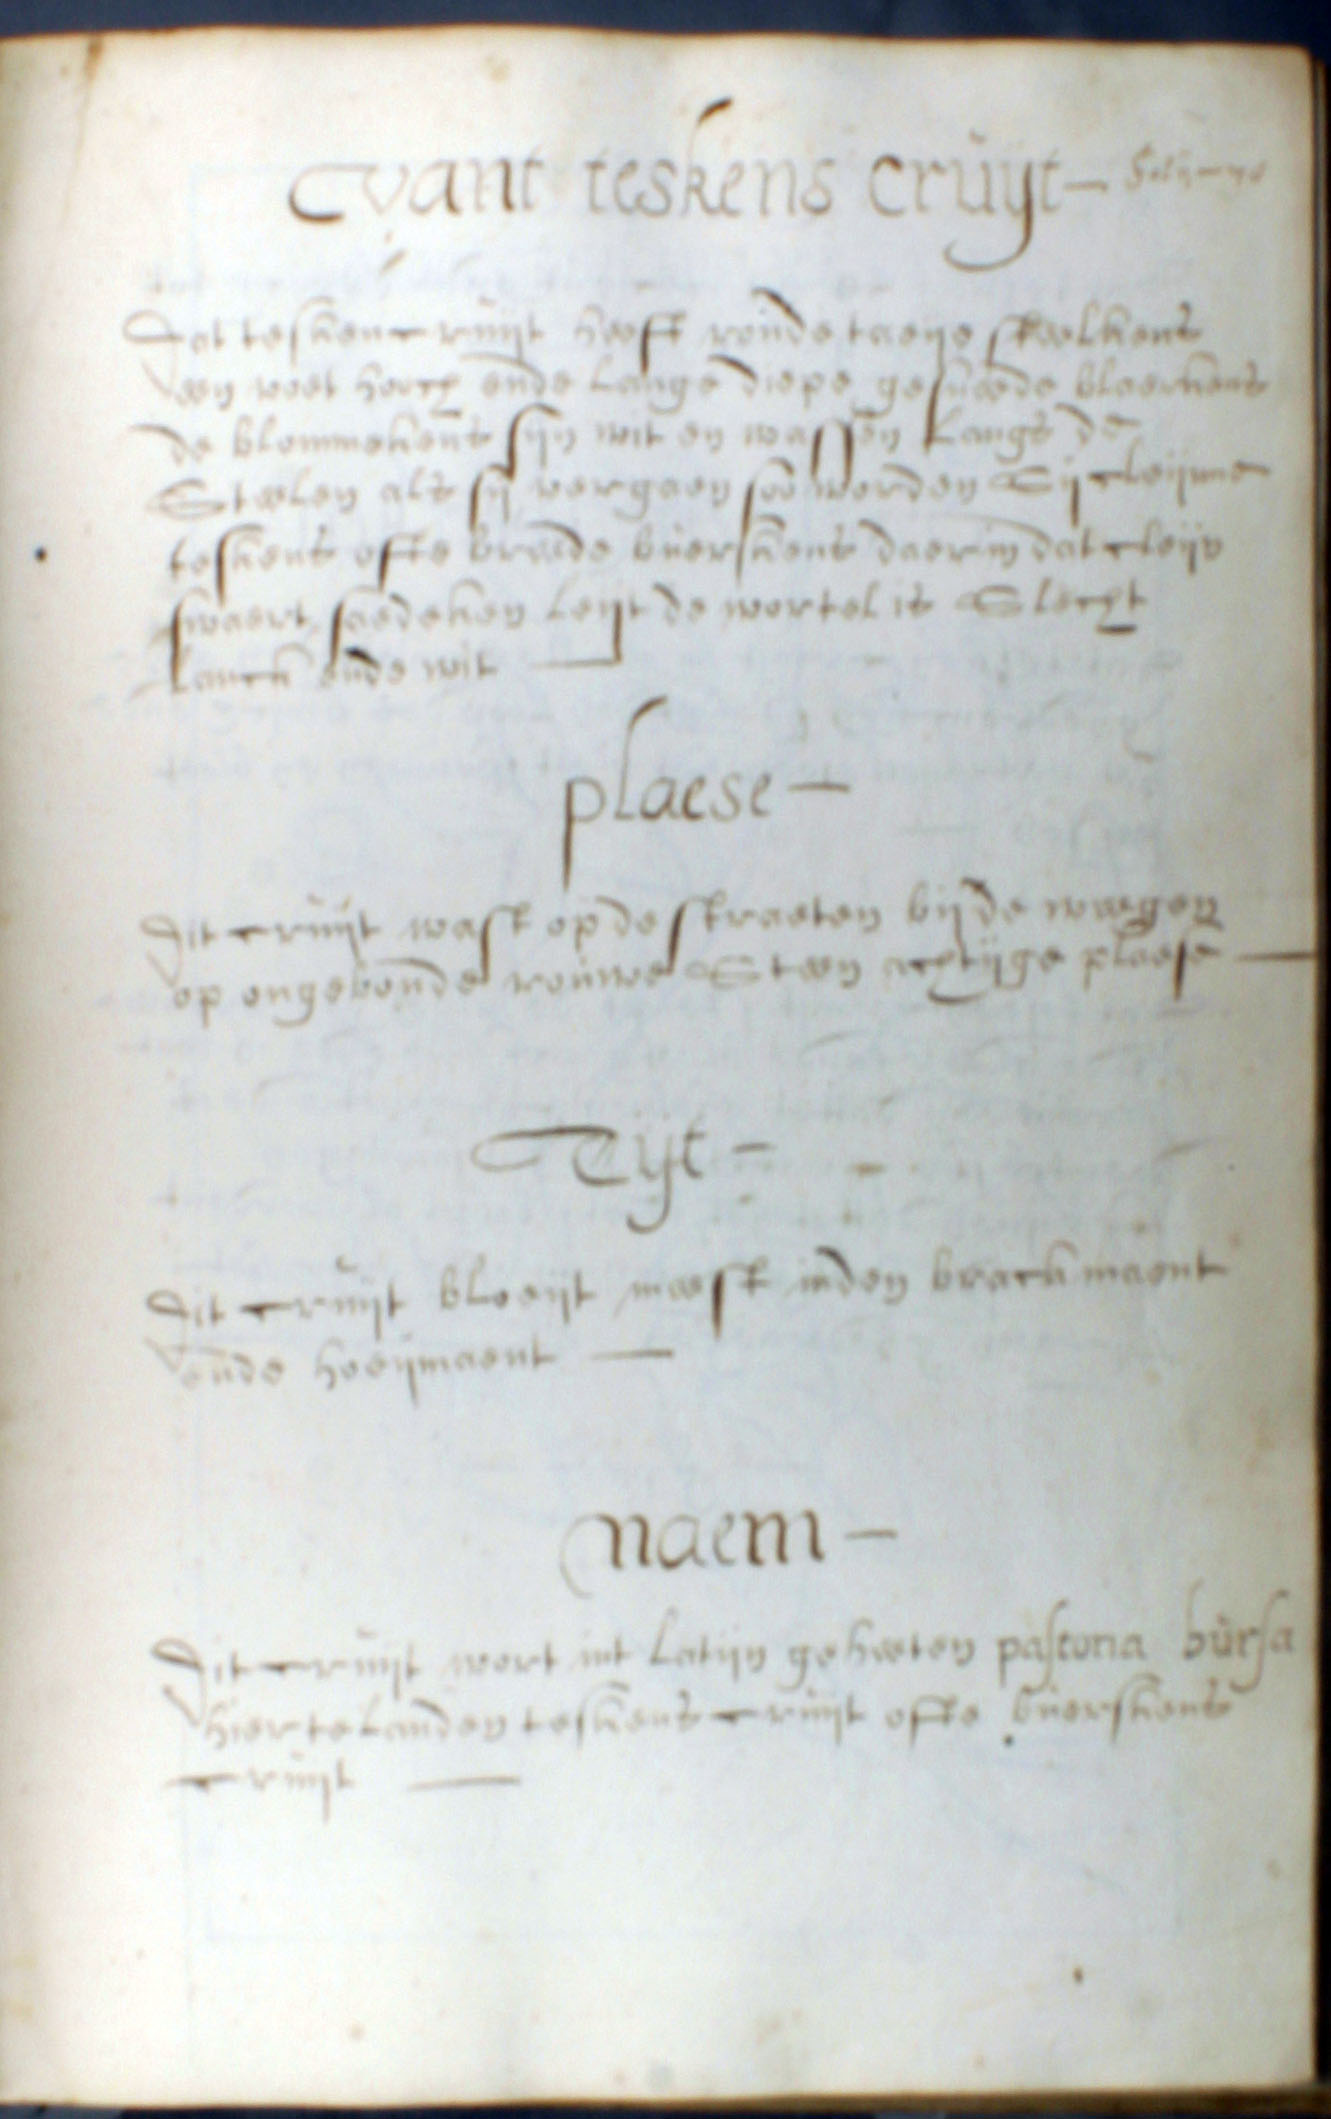 vant teskens crüyt
Dat teskencruijt heeft ronde taeije steelkens
een voet hooch ende lange diepe gesnede blaerkens
de blommekens sijn wit en wassen langs de
Steelen als sij vergaen soo worden Sij cleijne
teskens ofte breede buerskens daer in dat cleijn
swaert saedeken leijt de wortel is Slecht
lanck ende wit
plaese
Dit cruijt wast op de straeten bij de weegen
op ongeboude rouwe Steen achtijge plaese
Tijt
Dit cruijt bloeijt meest inden brackmaent
ende hoeijmaent
naem
Dit cruijt wort int Latijn geheeten pastoria bursa
hier te landen teskens cruijt ofte buerskens
cruijt